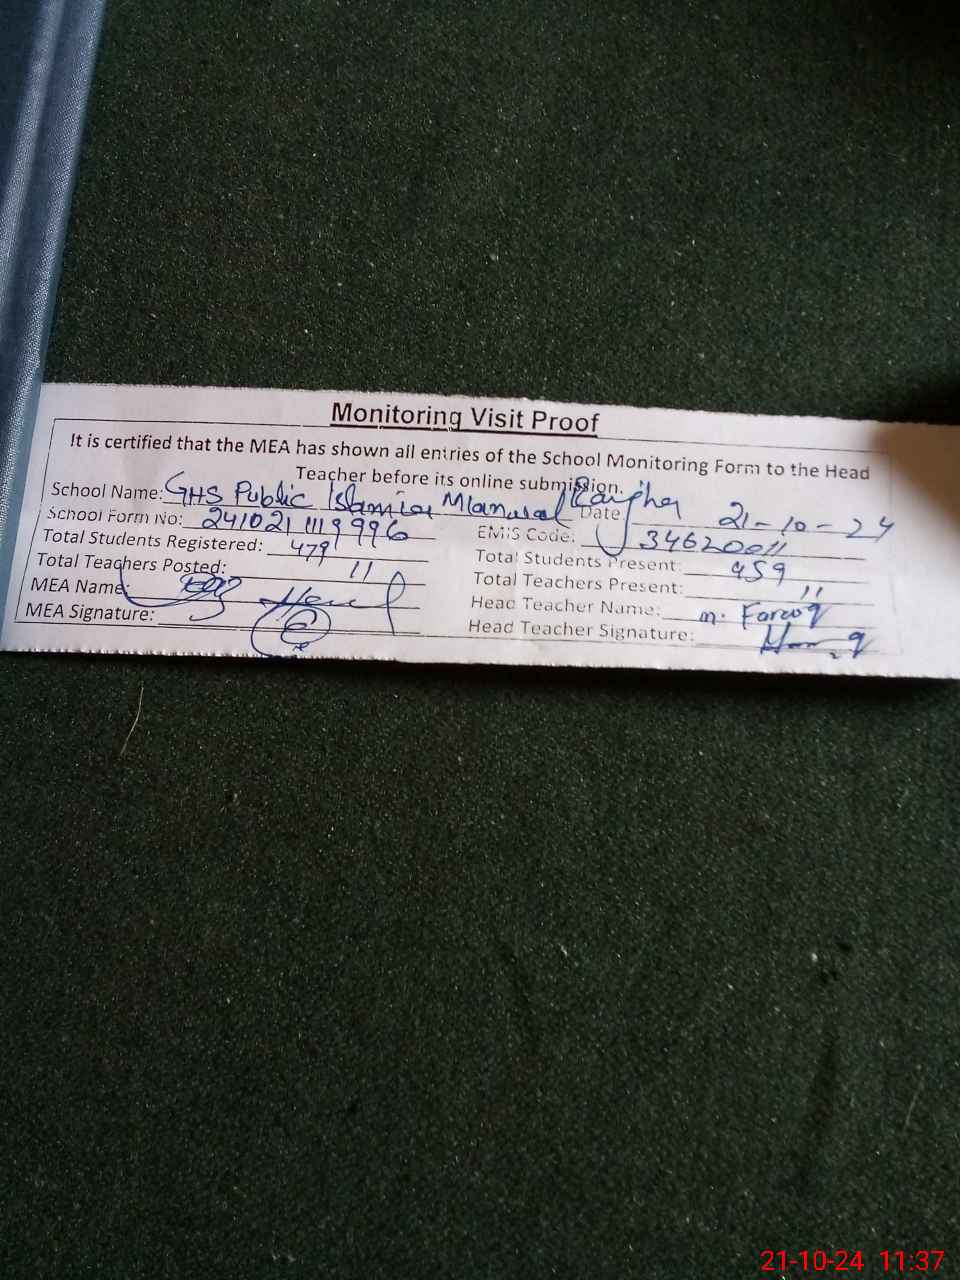 Monitoring Visit Proof
It is certified that the MEA has shown all entries of the School Monitoring Form to the Head
Teacher before its online submission.
School Name: GHS Public Islamia Date 21-10-24
School Form No: 2410211119996 EMIS Code: 34620011
Total Students Registered: 479 Total Students Present: 459
Total Teachers Posted: 11 Total Teachers Present: 11
MEA Name: Head Teacher Name: M. Farooq
MEA Signature: Head Teacher Signature:
21-10-24 11:37